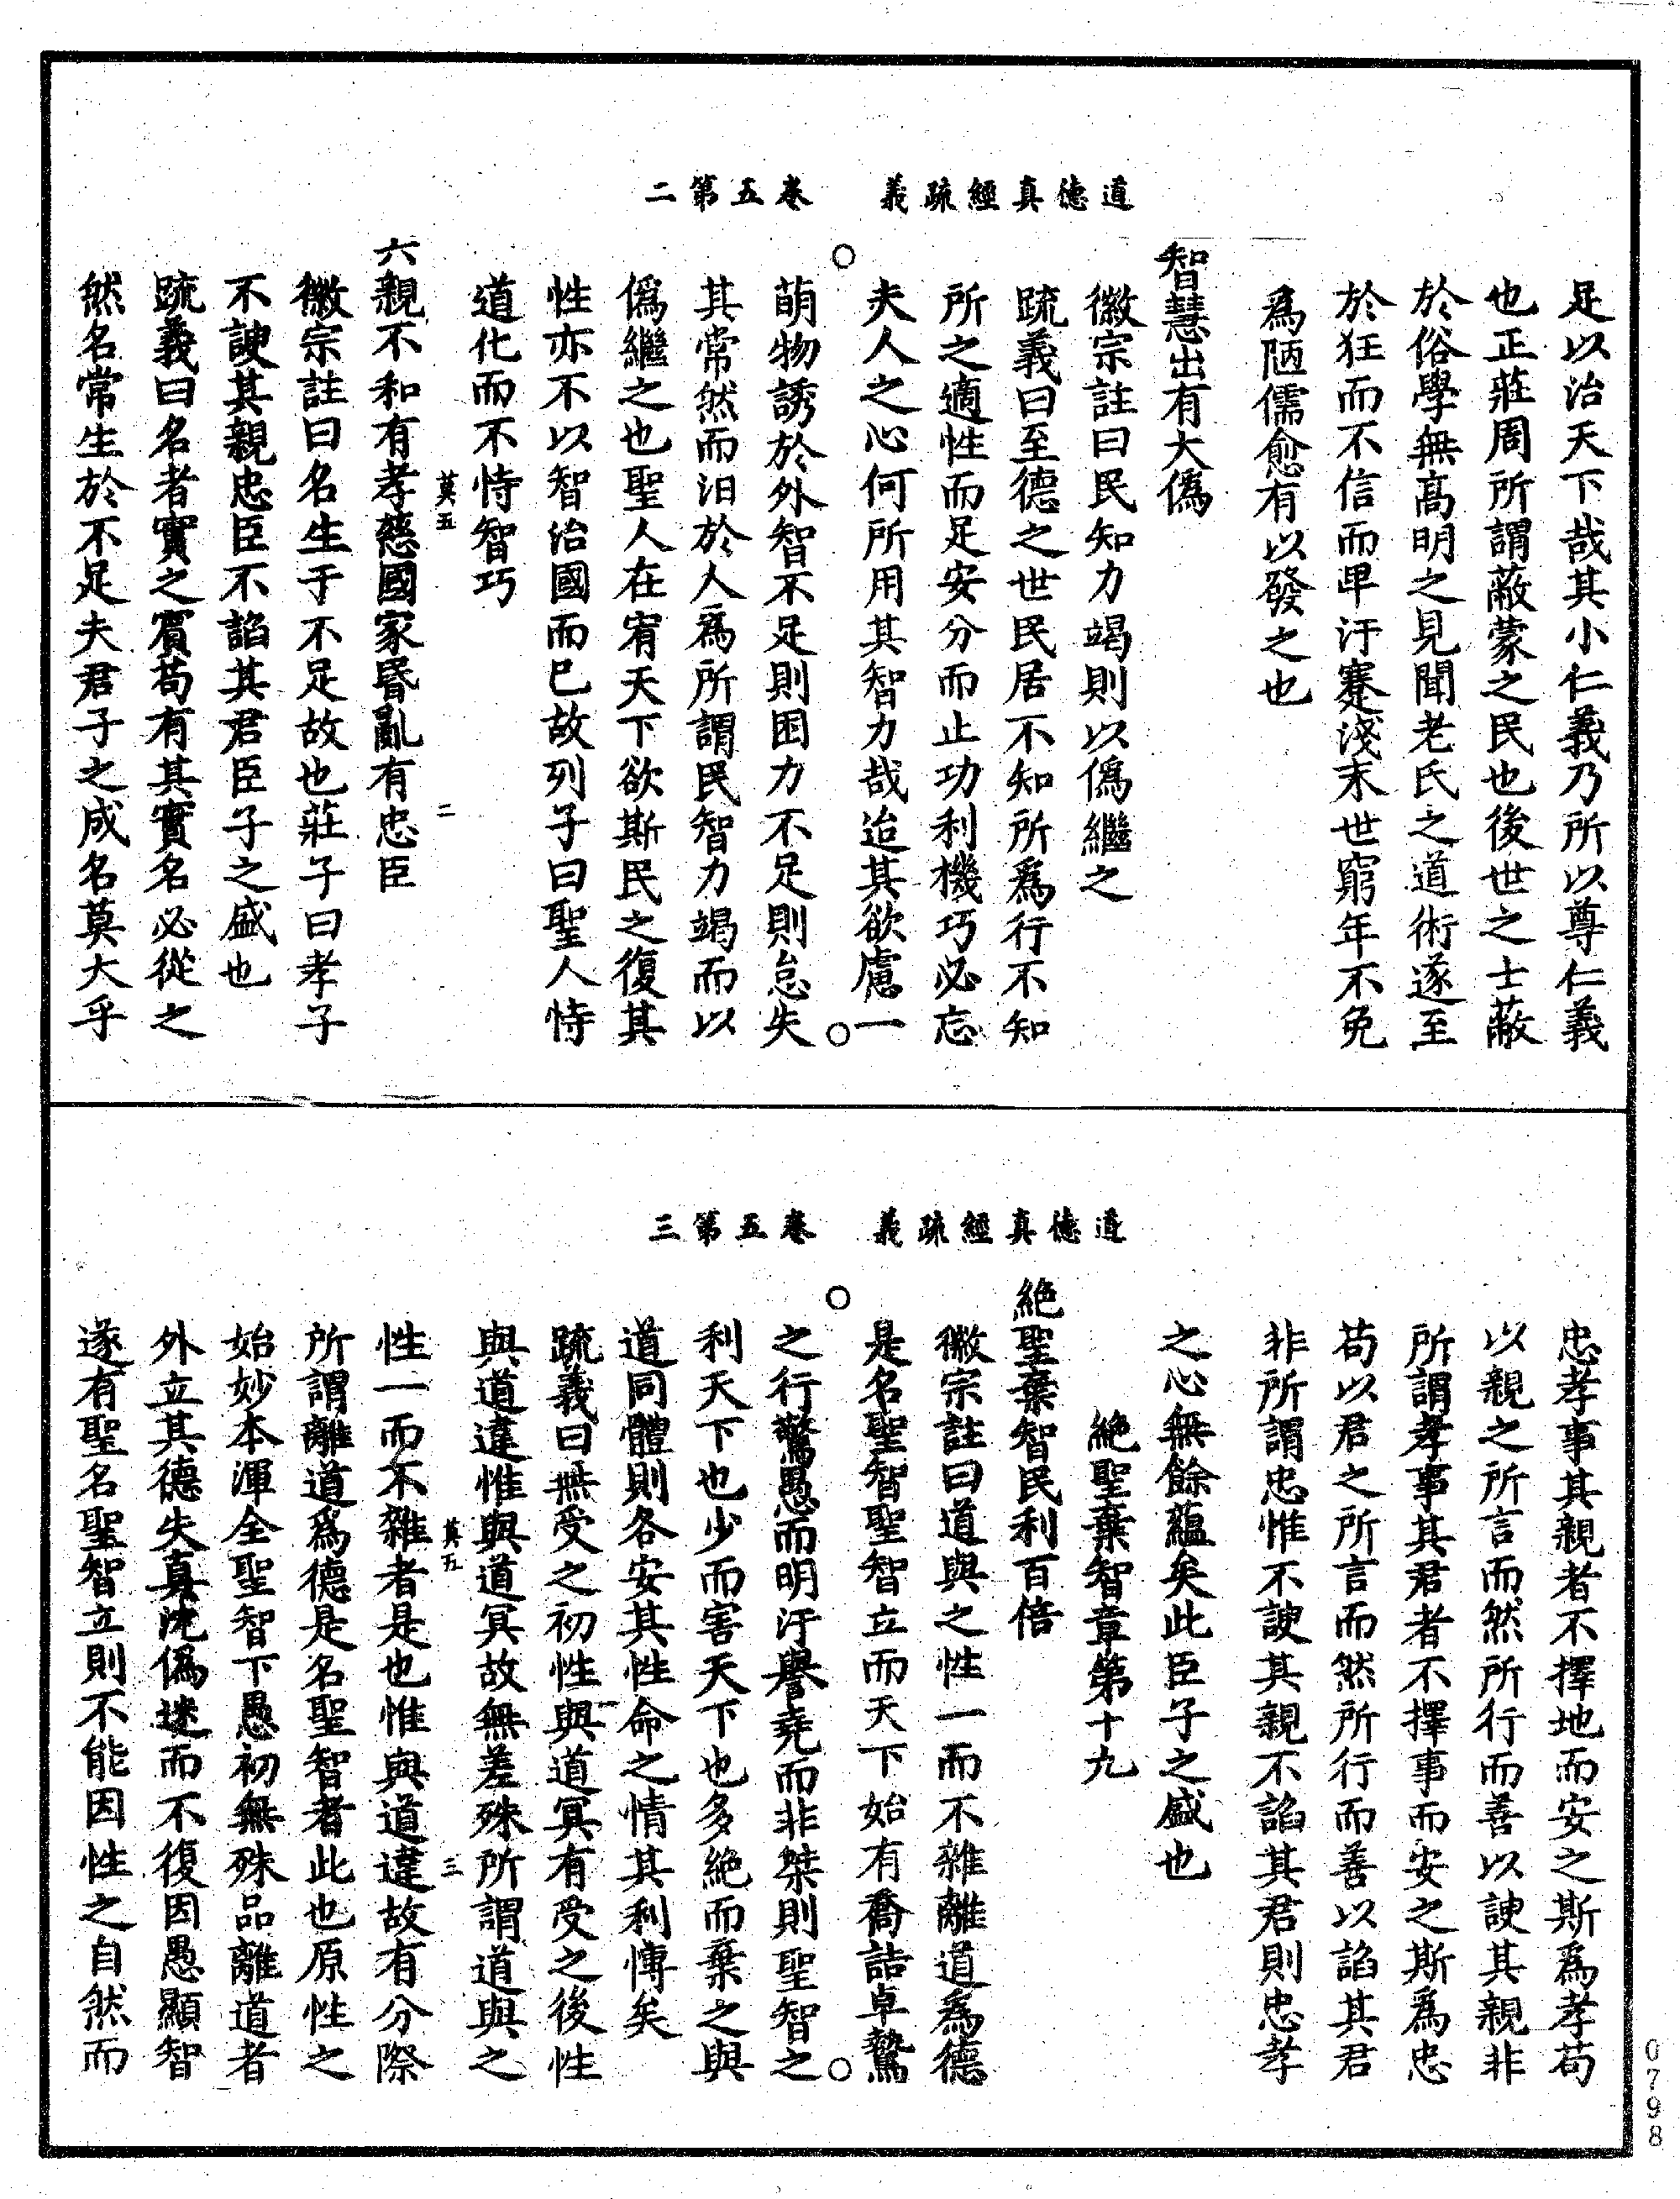 道德真經疏義　卷五第二
足以治天下哉其小仁義乃所以尊仁義
也正莊周所謂蔽蒙之民也後世之士蔽
於俗學無高明之見聞老氏之道術遂至
於狂而不信而卑汙蹇淺末世窮年不免
為陋儒愈有以發之也
智慧出有大偽
徽宗註曰民知力竭則以偽繼之
疏義曰至德之世民居不知所為行不知
所之適性而足安分而止功利機巧必忘
夫人之心何所用其智力哉迨其欲慮一
萌物誘於外智不足則困力不足則怠失
其常然而汨於人為所謂民智力竭而以
偽繼之也聖人在宥天下欲斯民之復其
性亦不以智治國而已故列子曰聖人恃
道化而不恃智巧
莫五　二
六親不和有孝慈國家昬亂有忠臣
徽宗註曰名生于不足故也莊子曰孝子
不諛其親忠臣不諂其君臣子之盛也
疏義曰名者實之賓苟有其實名必從之
然名常生於不足夫君子之成名莫大乎
道德真經疏義　卷五第三
忠孝事其親者不擇地而安之斯為孝苟
以親之所言而然所行而善以諛其親非
所謂孝事其君者不擇事而安之斯為忠
苟以君之所言而然所行而善以諂其君
非所謂忠惟不諛其親不諂其君則忠孝
之心無餘蘊矣此臣子之盛也
絕聖棄智章第十九
絕聖棄智民利百倍
徽宗註曰道與之性一而不雜離道為德
是名聖智聖智立而天下始有喬詰卓鷙
之行驚愚而明汙譽堯而非桀則聖智之
利天下也少而害天下也多絕而棄之與
道同體則各安其性命之情其利博矣
疏義曰無受之初性與道冥有受之後性
與道違惟與道冥故無差殊所謂道與之
莫五　三
性一而不雜者是也惟與道違故有分際
所謂離道為德是名聖智者此也原性之
始妙本渾全聖智下愚初無殊品離道者
外立其德失真沈偽迷而不復因愚顯智
遂有聖名聖智立則不能因性之自然而
0798